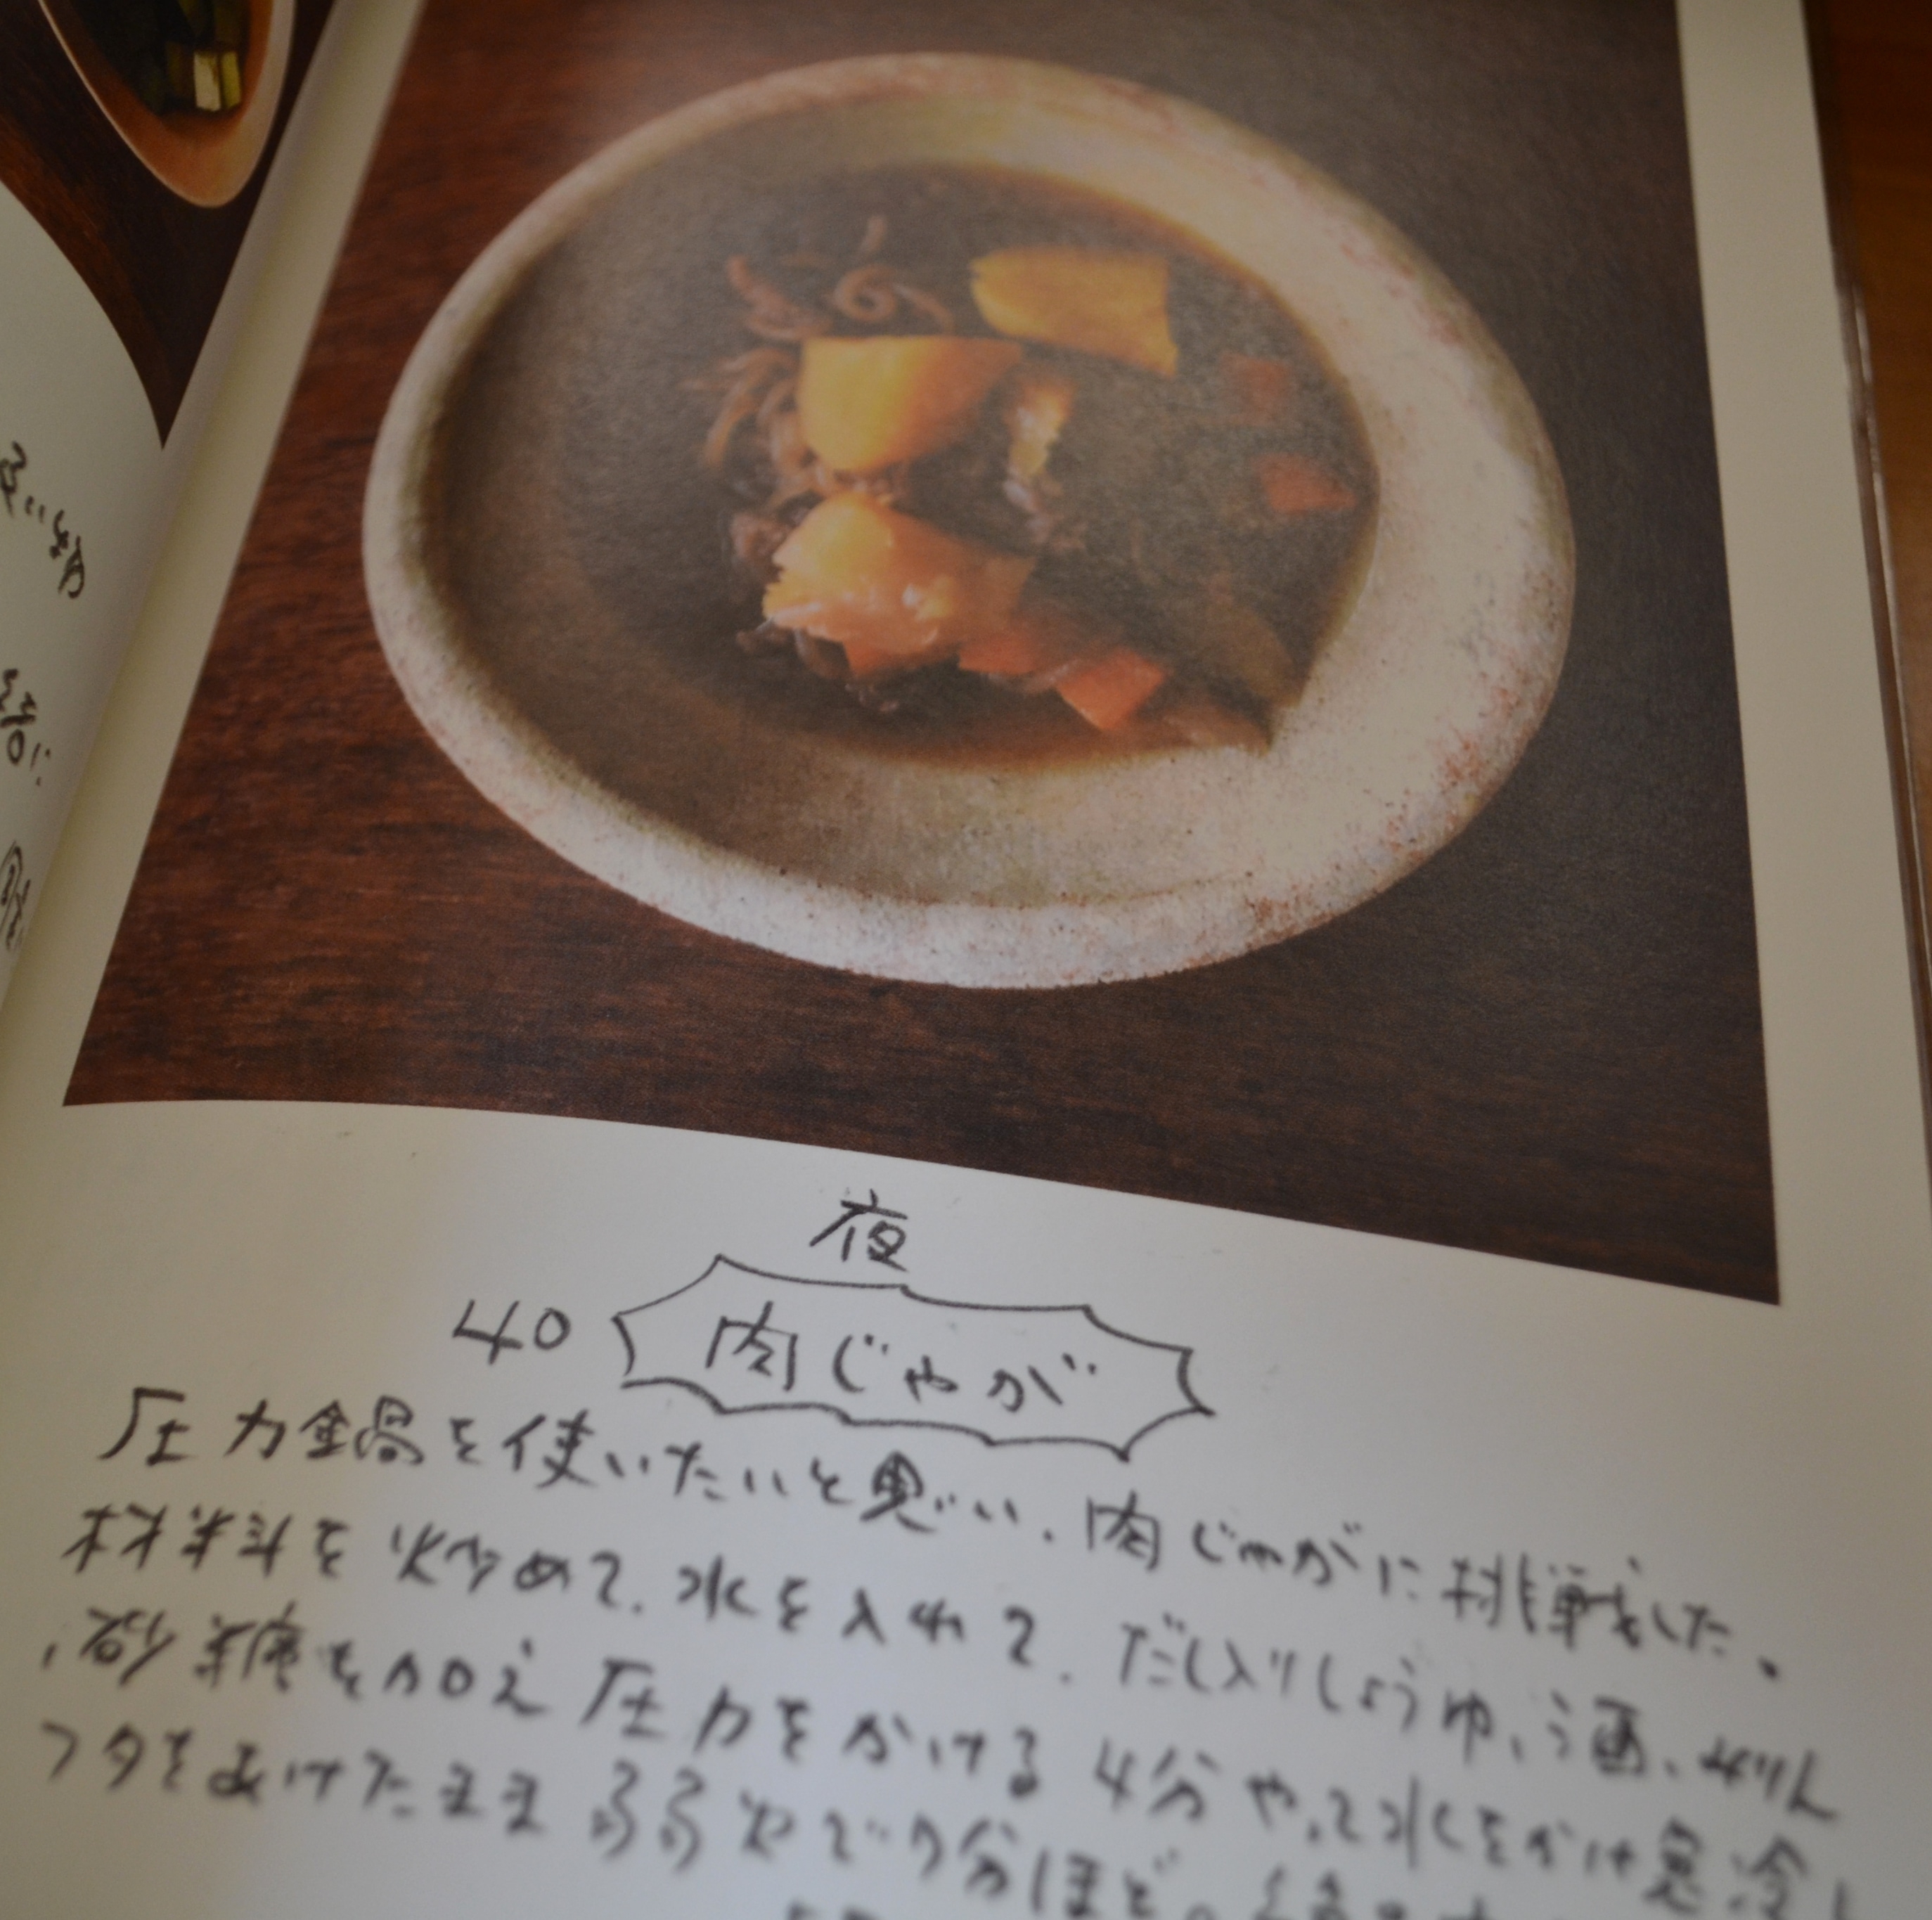 夜
40 肉じゃが
圧力鍋を使いたいと思い、肉じゃがに挑戦した。
材料を炒めて、水を入れて、だし入りしょうゆ、酒、みりん
、砂糖を加え圧力をかける 4分やって水をかけ急冷し
フタをあけたまま弱火で7分ほど。